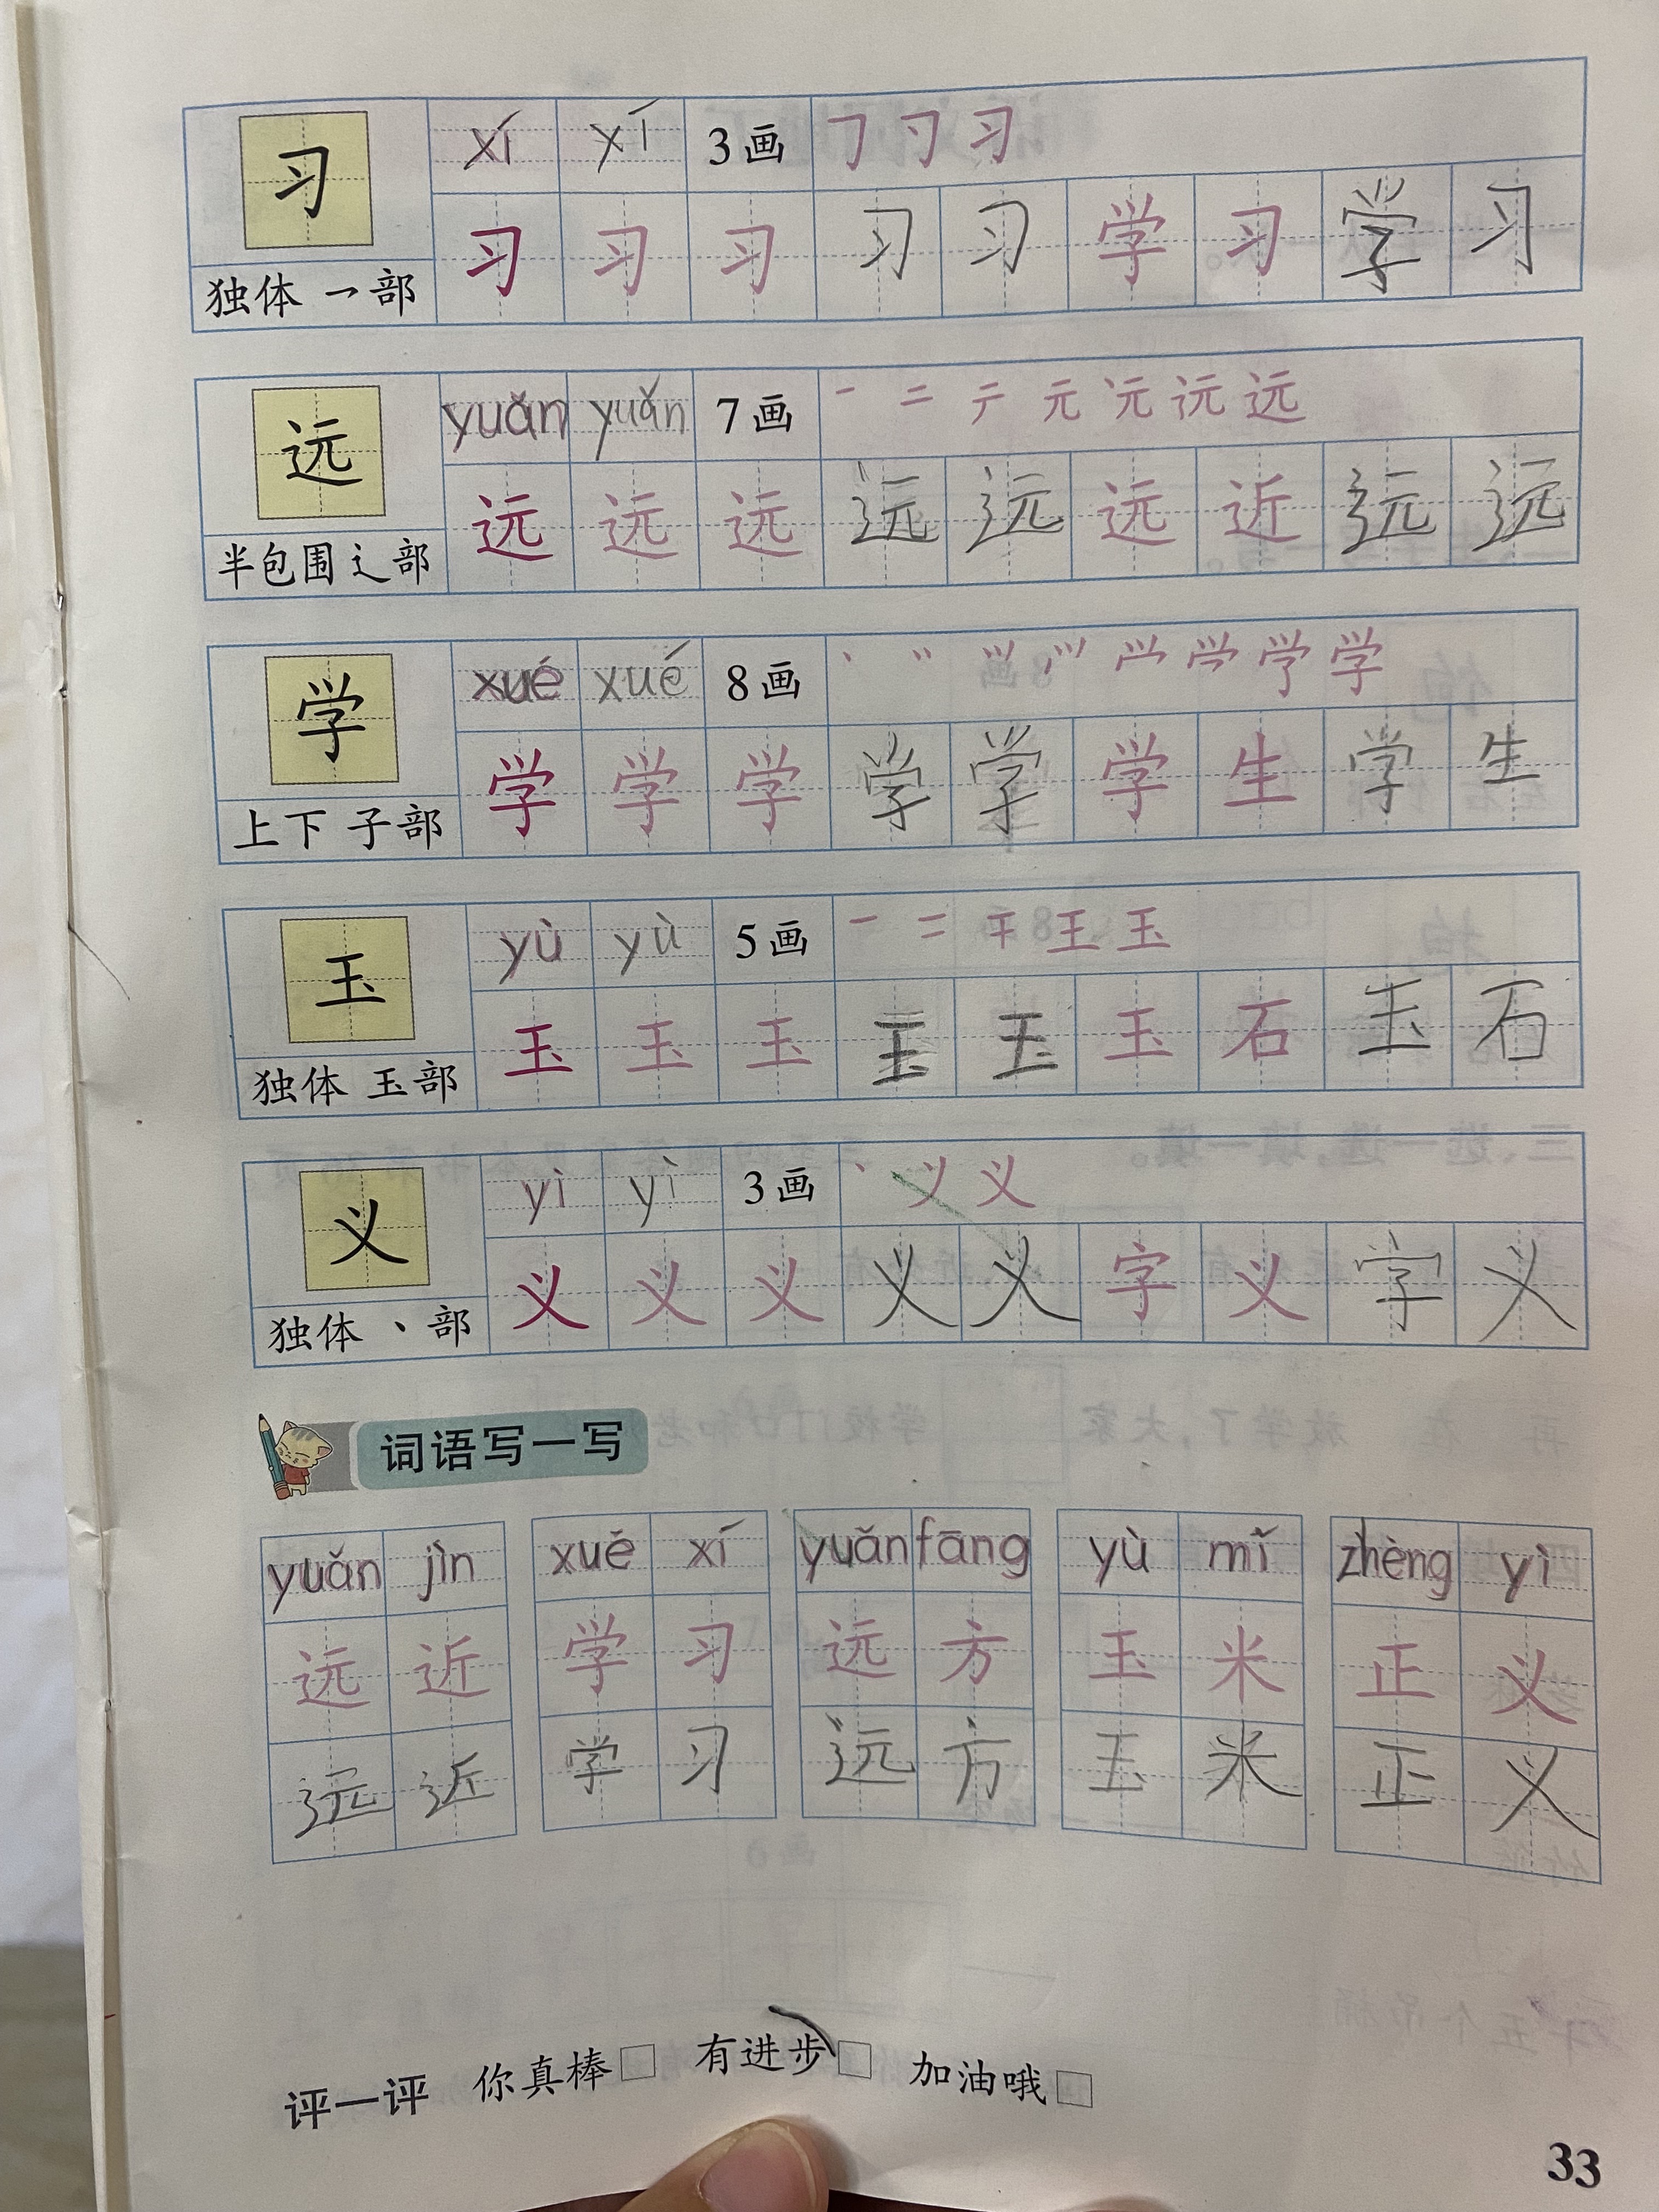 习 xí xí 3画 ㇆ 刁 习
习 习 习 习 习 学 习 学 习
独体 乛部
远 yuǎn yuǎn 7画 一 二 テ 元 远
远 远 远 远 远 远 近 远 远
半包围 辶部
学 xué xué 8画 丶 学
学 学 学 学 学 学 生 学 生
上下 子部
玉 yù yù 5画 一 二 干 王 玉
玉 玉 玉 玉 玉 玉 石 玉 石
独体 玉部
义 yì yì 3画 丶 义 义
义 义 义 义 义 字 义 字 义
独体 丶部
词语写一写
yuǎn jìn xué xí yuǎn fāng yù mǐ zhèng yì
远 近 学 习 远 方 玉 米 正 义
远 近 学 习 远 方 玉 米 正 义
评一评 你真棒□ 有进步□ 加油哦□
33